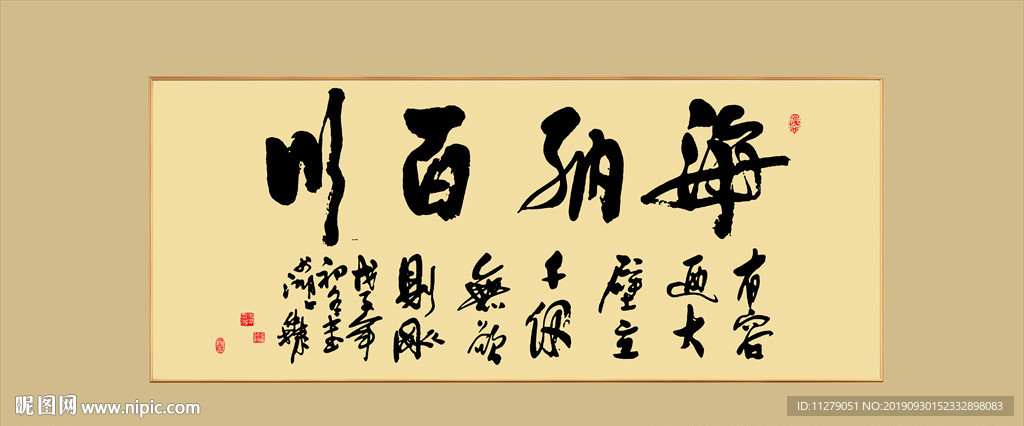 海納百川
有容
迺大
壁立
千仞
無欲
則剛
戊子年
初冬書
昵图网 www.nipic.com
ID:11279051 NO:20190930152332898083